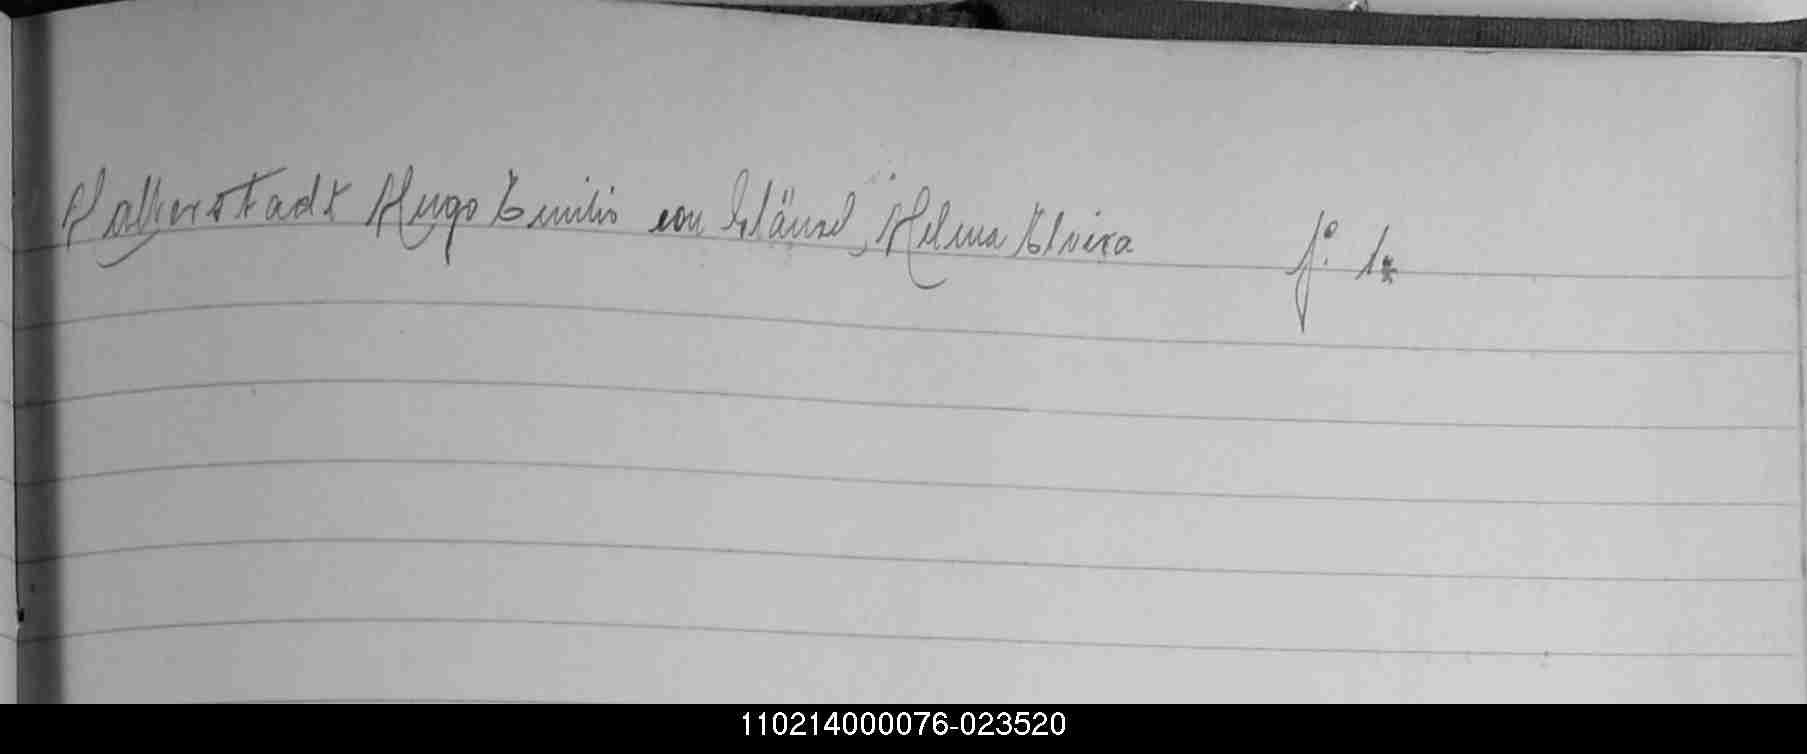 Halberstadt Hugo Emilio con Gläusel, Helena Elvira f.º 1
110214000076-023520